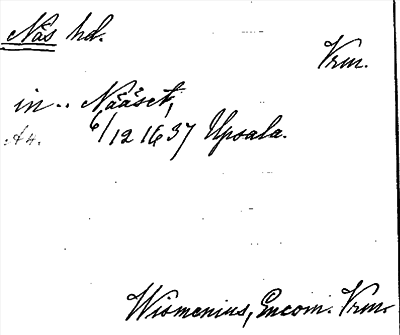 Näs hd.
Vrm.
in.. Nääset,
A4. 6/12 1637 Upsala.
Wismenius, Encom. Vrm.